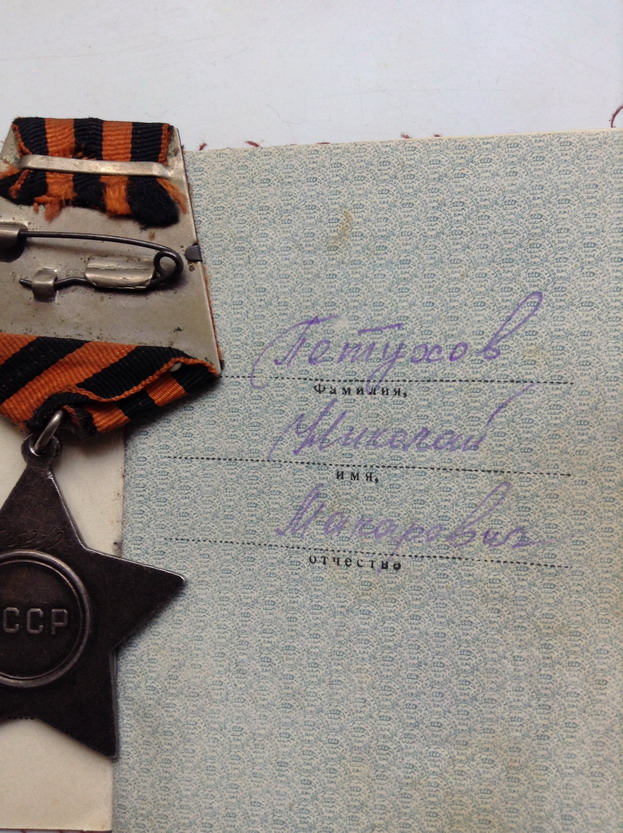 Петухов
фамилия,
Николай
имя,
Макарович
отчество
ССР